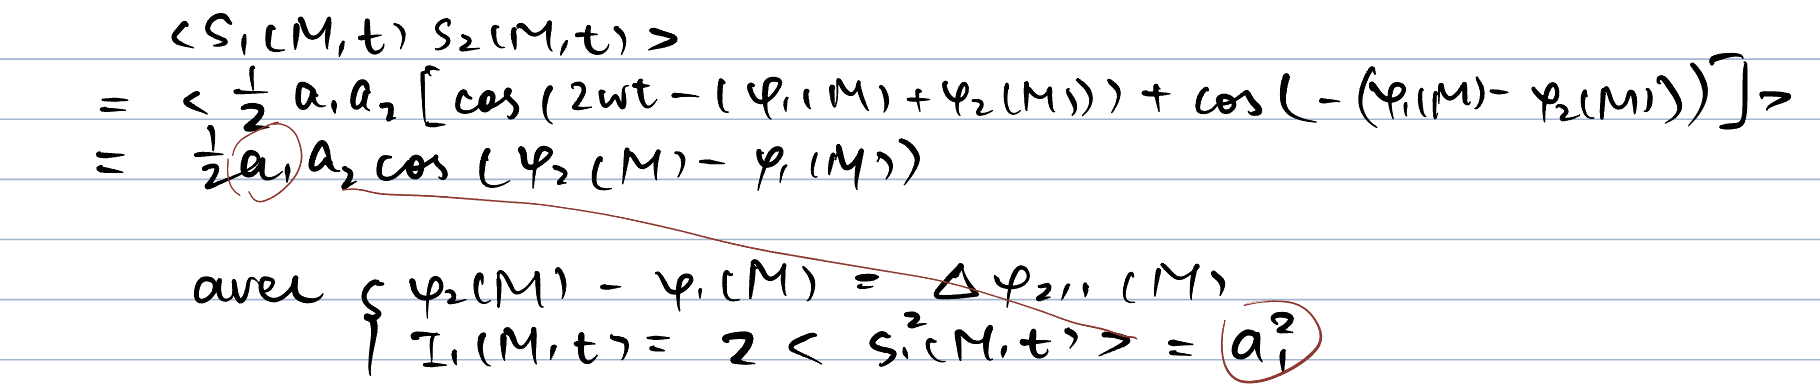 <S₁(M,t) S₂(M,t)>
= <½ a₁a₂ [cos(2ωt-(φ₁(M)+φ₂(M))) + cos(-(φ₁(M)-φ₂(M)))]>
= ½ a₁a₂ cos(φ₂(M)-φ₁(M))
avec { φ₂(M) - φ₁(M) = Δφ₂,₁(M)
I₁(M,t) = 2 <S₁²(M,t)> = a₁²